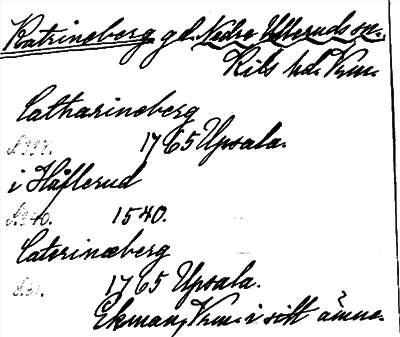 Katrineberg gd. Nedre Ulleruds sn.
Kils hd. Vrm.
Catharineberg
S. 337. 1765 Upsala.
i Håflerud
S. 340. 1540.
Caterinæberg
1765 Upsala.
Ekman, Vrm. i sitt ämne.